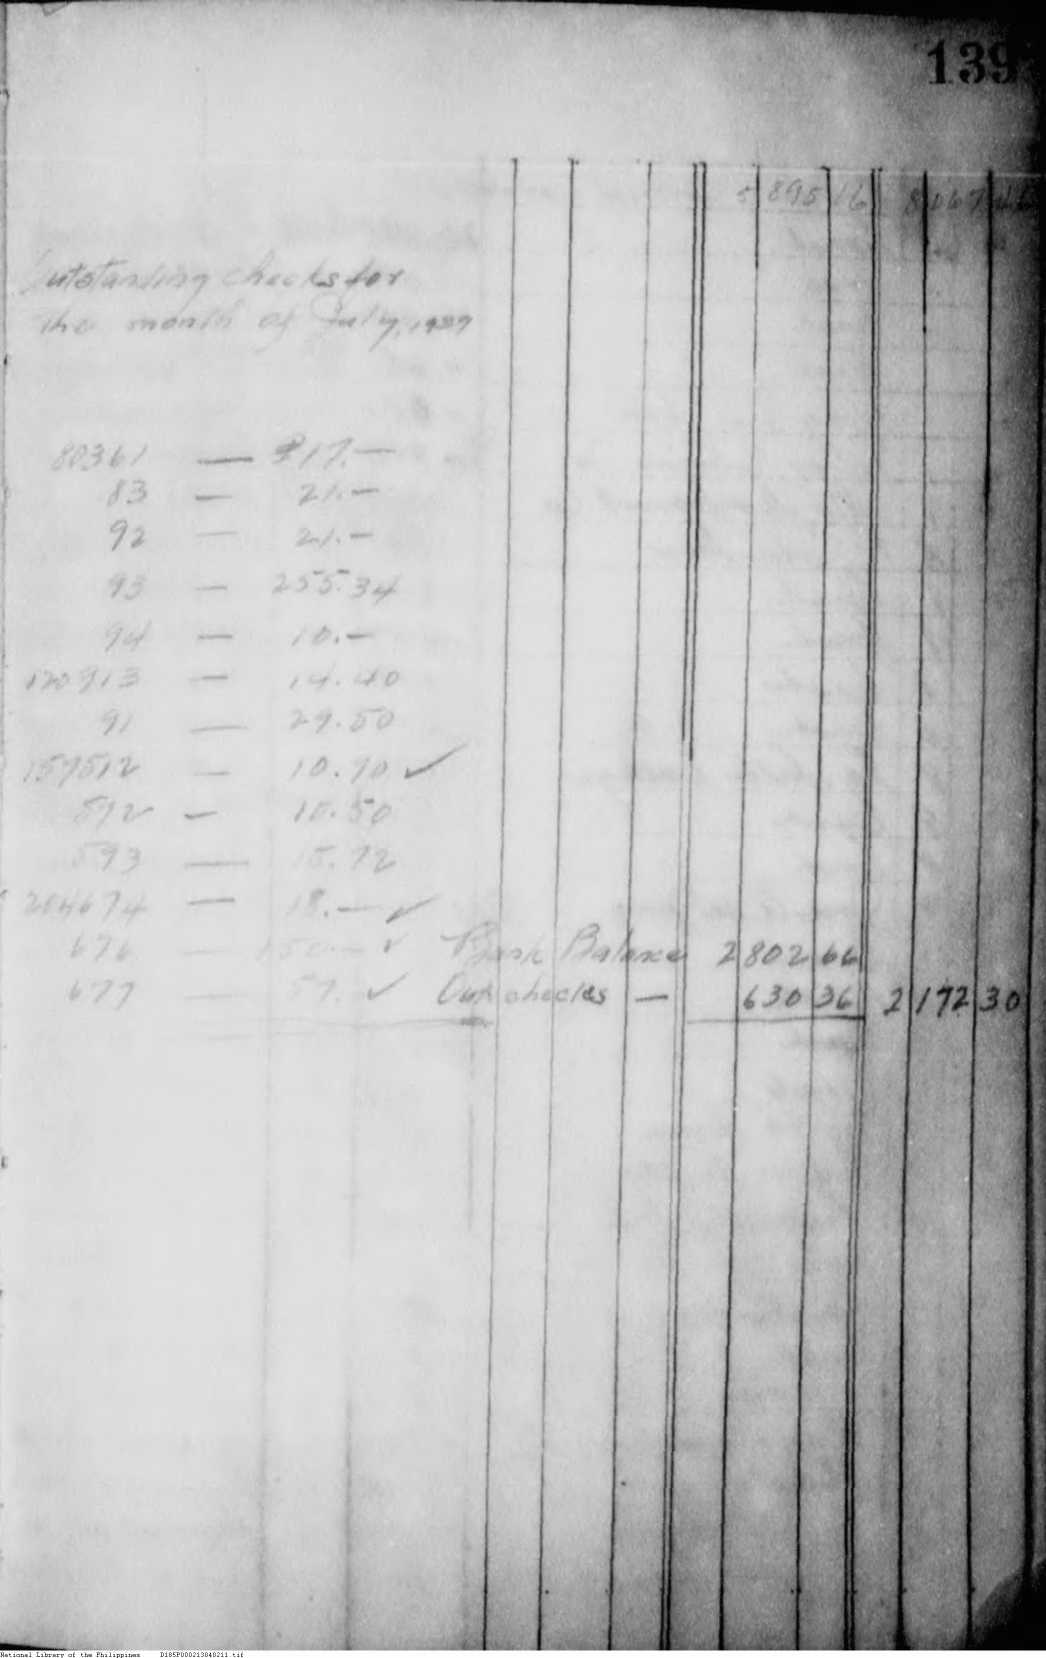 139
5 895 16 8 067 46
Outstanding checks for
the month of July, 1939
80361 — ₱17.—
83 — 21.—
92 — 21.—
93 — 255.34
94 — 10.—
120913 — 14.40
91 — 29.50
159512 — 10.90 ✓
592 — 10.50
593 — 15.72
204674 — 18.— ✓
676 — 150.— ✓ Bank Balance 2 802 66
677 — 57.— ✓ Out checks — 630 36 2 172 30
National Library of the Philippines D185P000213040211.tif